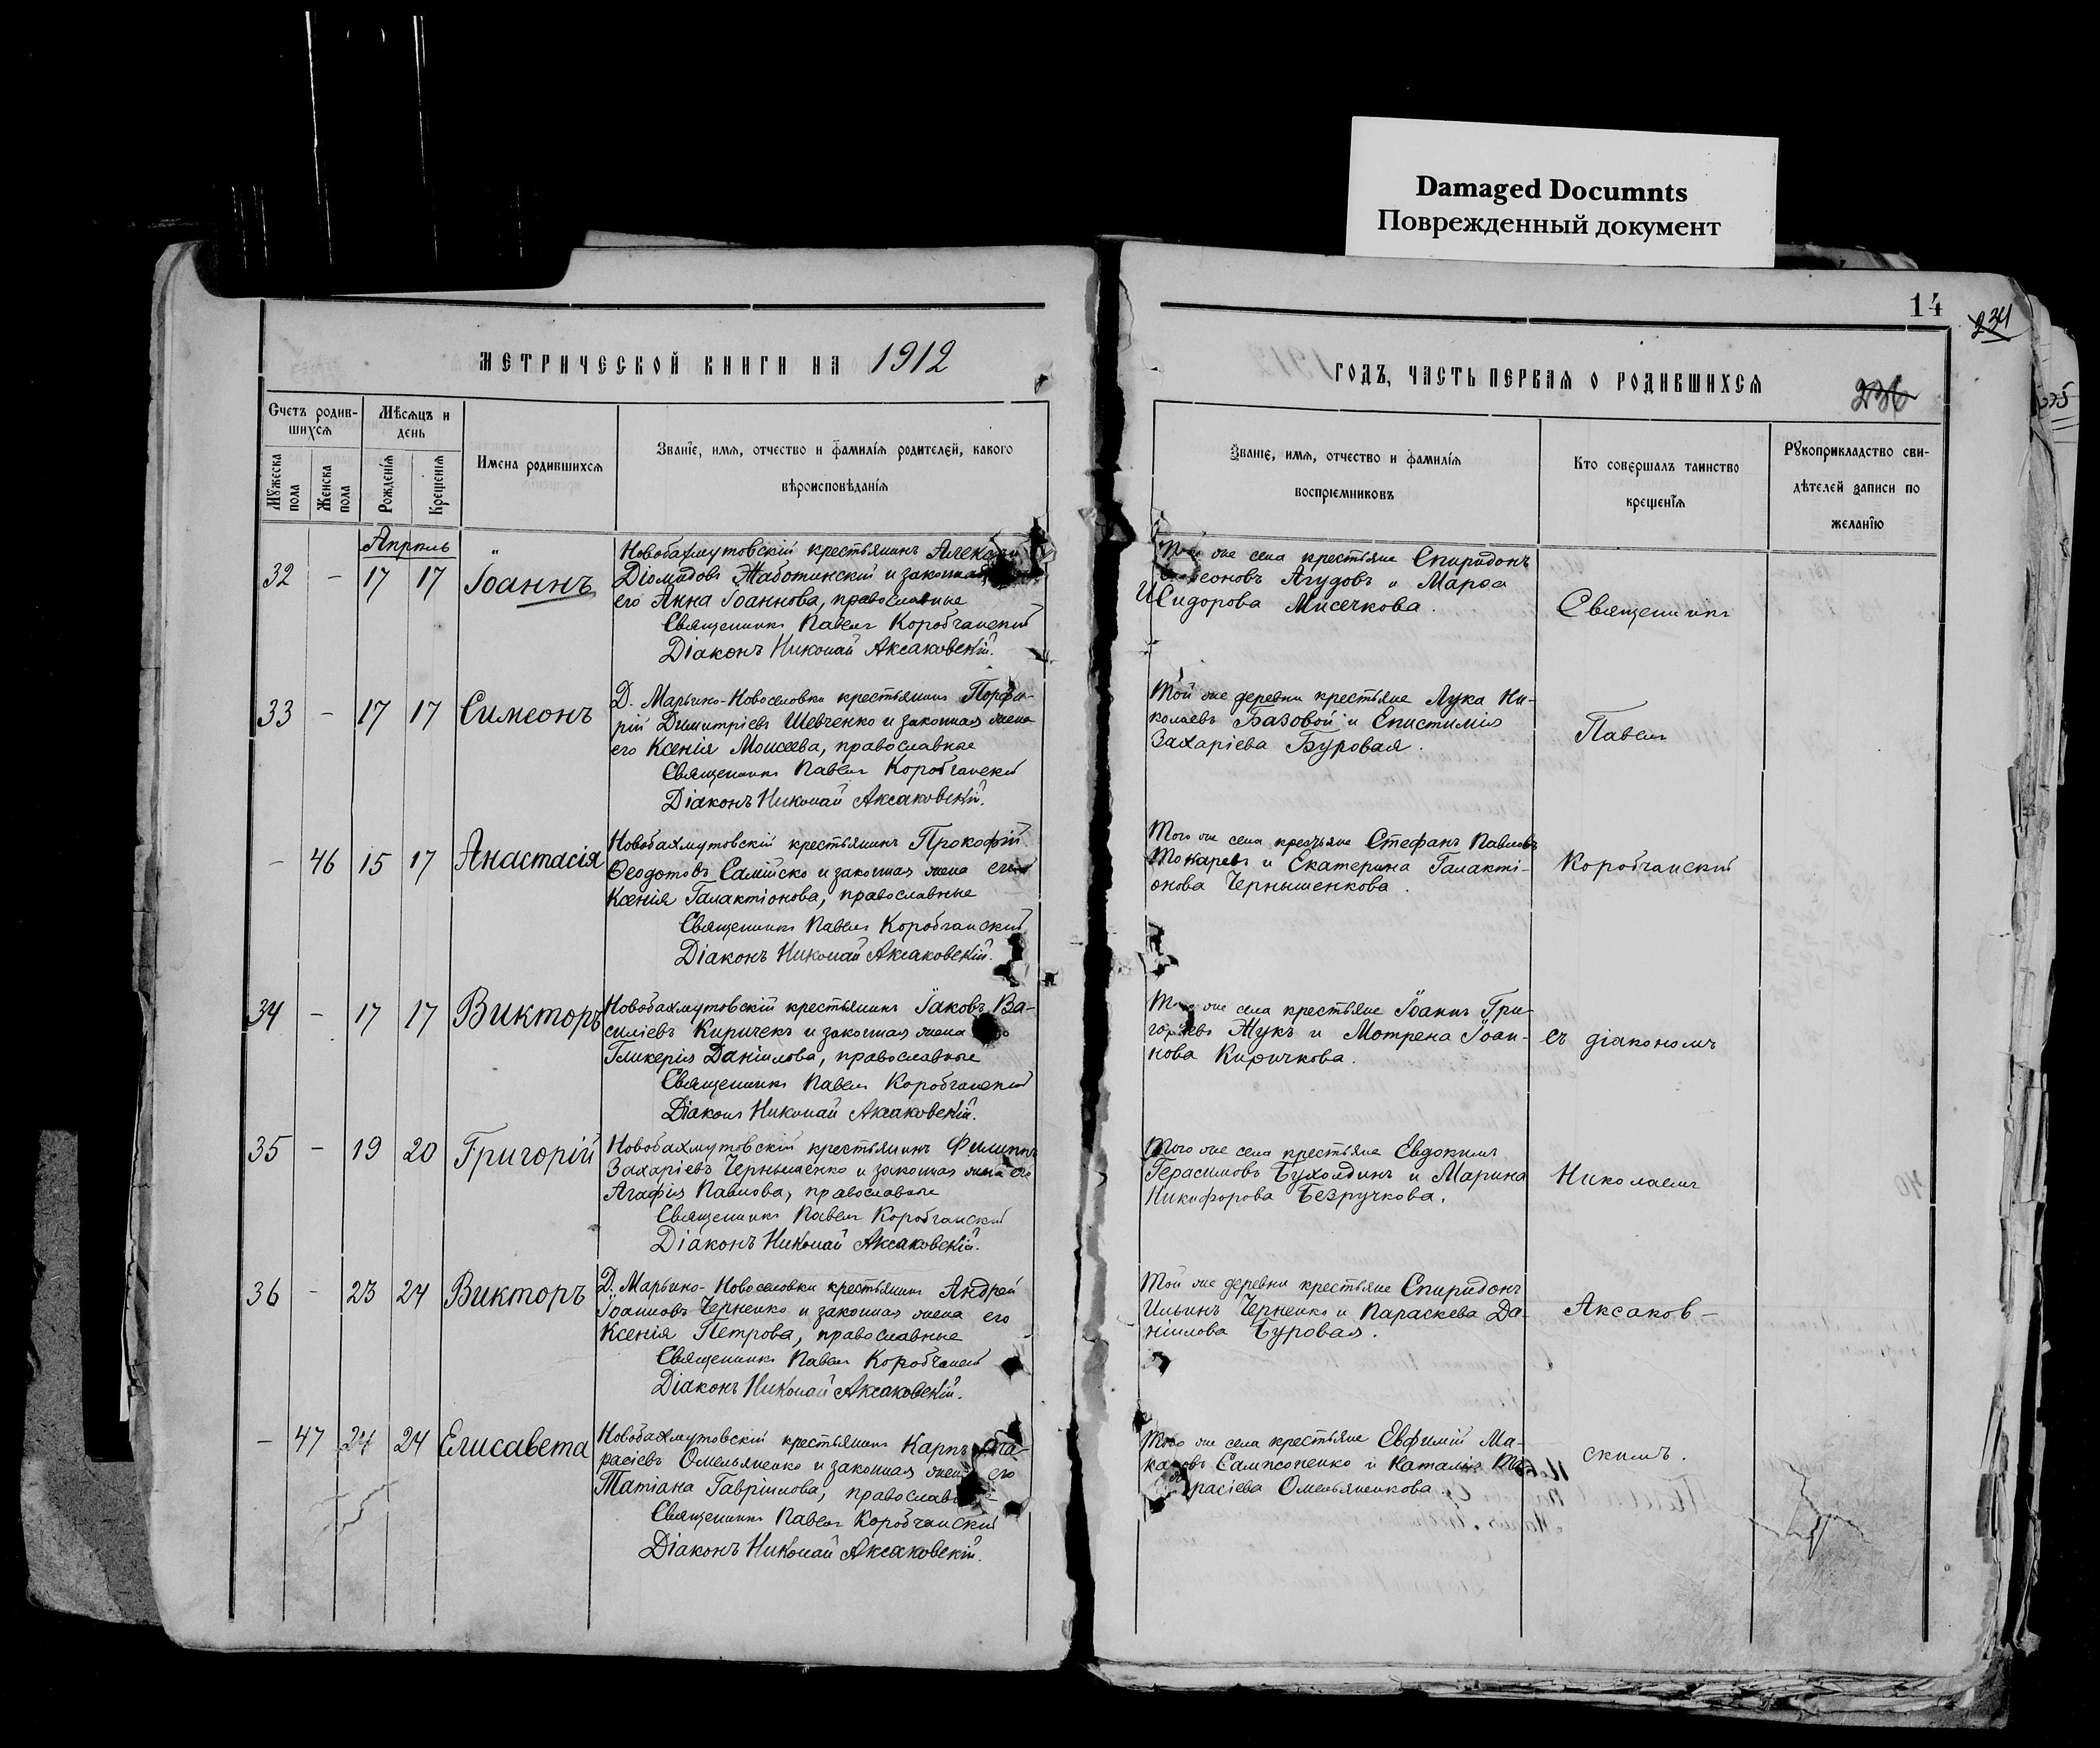 Damaged Documnts
Поврежденный документ
14
234
236
235
МЕТРИЧЕСКОЙ КНИГИ НА 1912
ГОДЪ, ЧАСТЬ ПЕРВАЯ О РОДИВШИХСЯ
Счетъ родив-
шихся
Мужеска пола
Женска пола
Мѣсяцъ и
день
Рожденія
Крещенія
Имена родившихся
Званіе, имя, отчество и фамилія родителей, какого
вѣроисповѣданія
Званіе, имя, отчество и фамилія
воспріемниковъ
Кто совершалъ таинство
крещенія
Рукоприкладство сви-
дѣтелей записи по
желанію
Апрель
32 - 17 17 Іоаннъ
Новобахмутовскій крестьянинъ
Діомидовъ Жаботинскій и законная
его Анна Іоаннова, православные
Священникъ Павелъ Коробчанскій
Діаконъ Николай Аксаковскій.
Того же села крестьяне Спиридонъ
Агудовъ и Марѳа
Исидорова Мисечкова.
Священникъ
33 - 17 17 Симеонъ
Д. Марьино-Новоселовка крестьянинъ Порфи-
рій Димитріевъ Шевченко и законная жена
его Ксенія Моисеева, православные
Священникъ Павелъ Коробчанскій
Діаконъ Николай Аксаковскій.
Той же деревни крестьяне Лука Ни-
колаевъ Базовой и Епистимія
Захаріева Буровая.
Павелъ
- 46 15 17 Анастасія
Новобахмутовскій крестьянинъ Прокофій
Ѳеодотовъ Самійско и законная жена его
Ксенія Галактіонова, православные
Священникъ Павелъ Коробчанскій
Діаконъ Николай Аксаковскій.
Того же села крестьяне Стефанъ Павловъ
Токаревъ и Екатерина Галакті-
онова Чернышенкова.
Коробчанскій
34 - 17 17 Викторъ
Новобахмутовскій крестьянинъ Іаковъ Ва-
силіевъ Киричекъ и законная жена
Гликерія Даніилова, православные
Священникъ Павелъ Коробчанскій
Діаконъ Николай Аксаковскій.
Того же села крестьяне Іоаннъ Гри-
горьевъ Жукъ и Мотрена Іоан-
нова Киричкова.
съ діакономъ
35 - 19 20 Григорій
Новобахмутовскій крестьянинъ Филиппъ
Захаріевъ Чернышенко и законная жена его
Агафія Павлова, православные
Священникъ Павелъ Коробчанскій
Діаконъ Николай Аксаковскій.
Того же села крестьяне Евдокимъ
Герасимовъ Бухолдинъ и Марина
Никифорова Безручкова.
Николаемъ
36 - 23 24 Викторъ
Д. Марьино-Новоселовки крестьянинъ Андрей
Іоанновъ Черненко и законная жена его
Ксенія Петрова, православные
Священникъ Павелъ Коробчанскій
Діаконъ Николай Аксаковскій.
Той же деревни крестьяне Спиридонъ
Ильинъ Черненко и Параскева Да-
ніилова Буровая.
Аксаков-
- 47 24 24 Елисавета
Новобахмутовскій крестьянинъ Карпъ
расіевъ Омельяненко и законная жена его
Татіана Гавріилова, православные
Священникъ Павелъ Коробчанскій
Діаконъ Николай Аксаковскій.
Того же села крестьяне Евфимій Ма-
каровъ Сампсоненко и Наталія
расіева Омельяненкова.
скимъ.